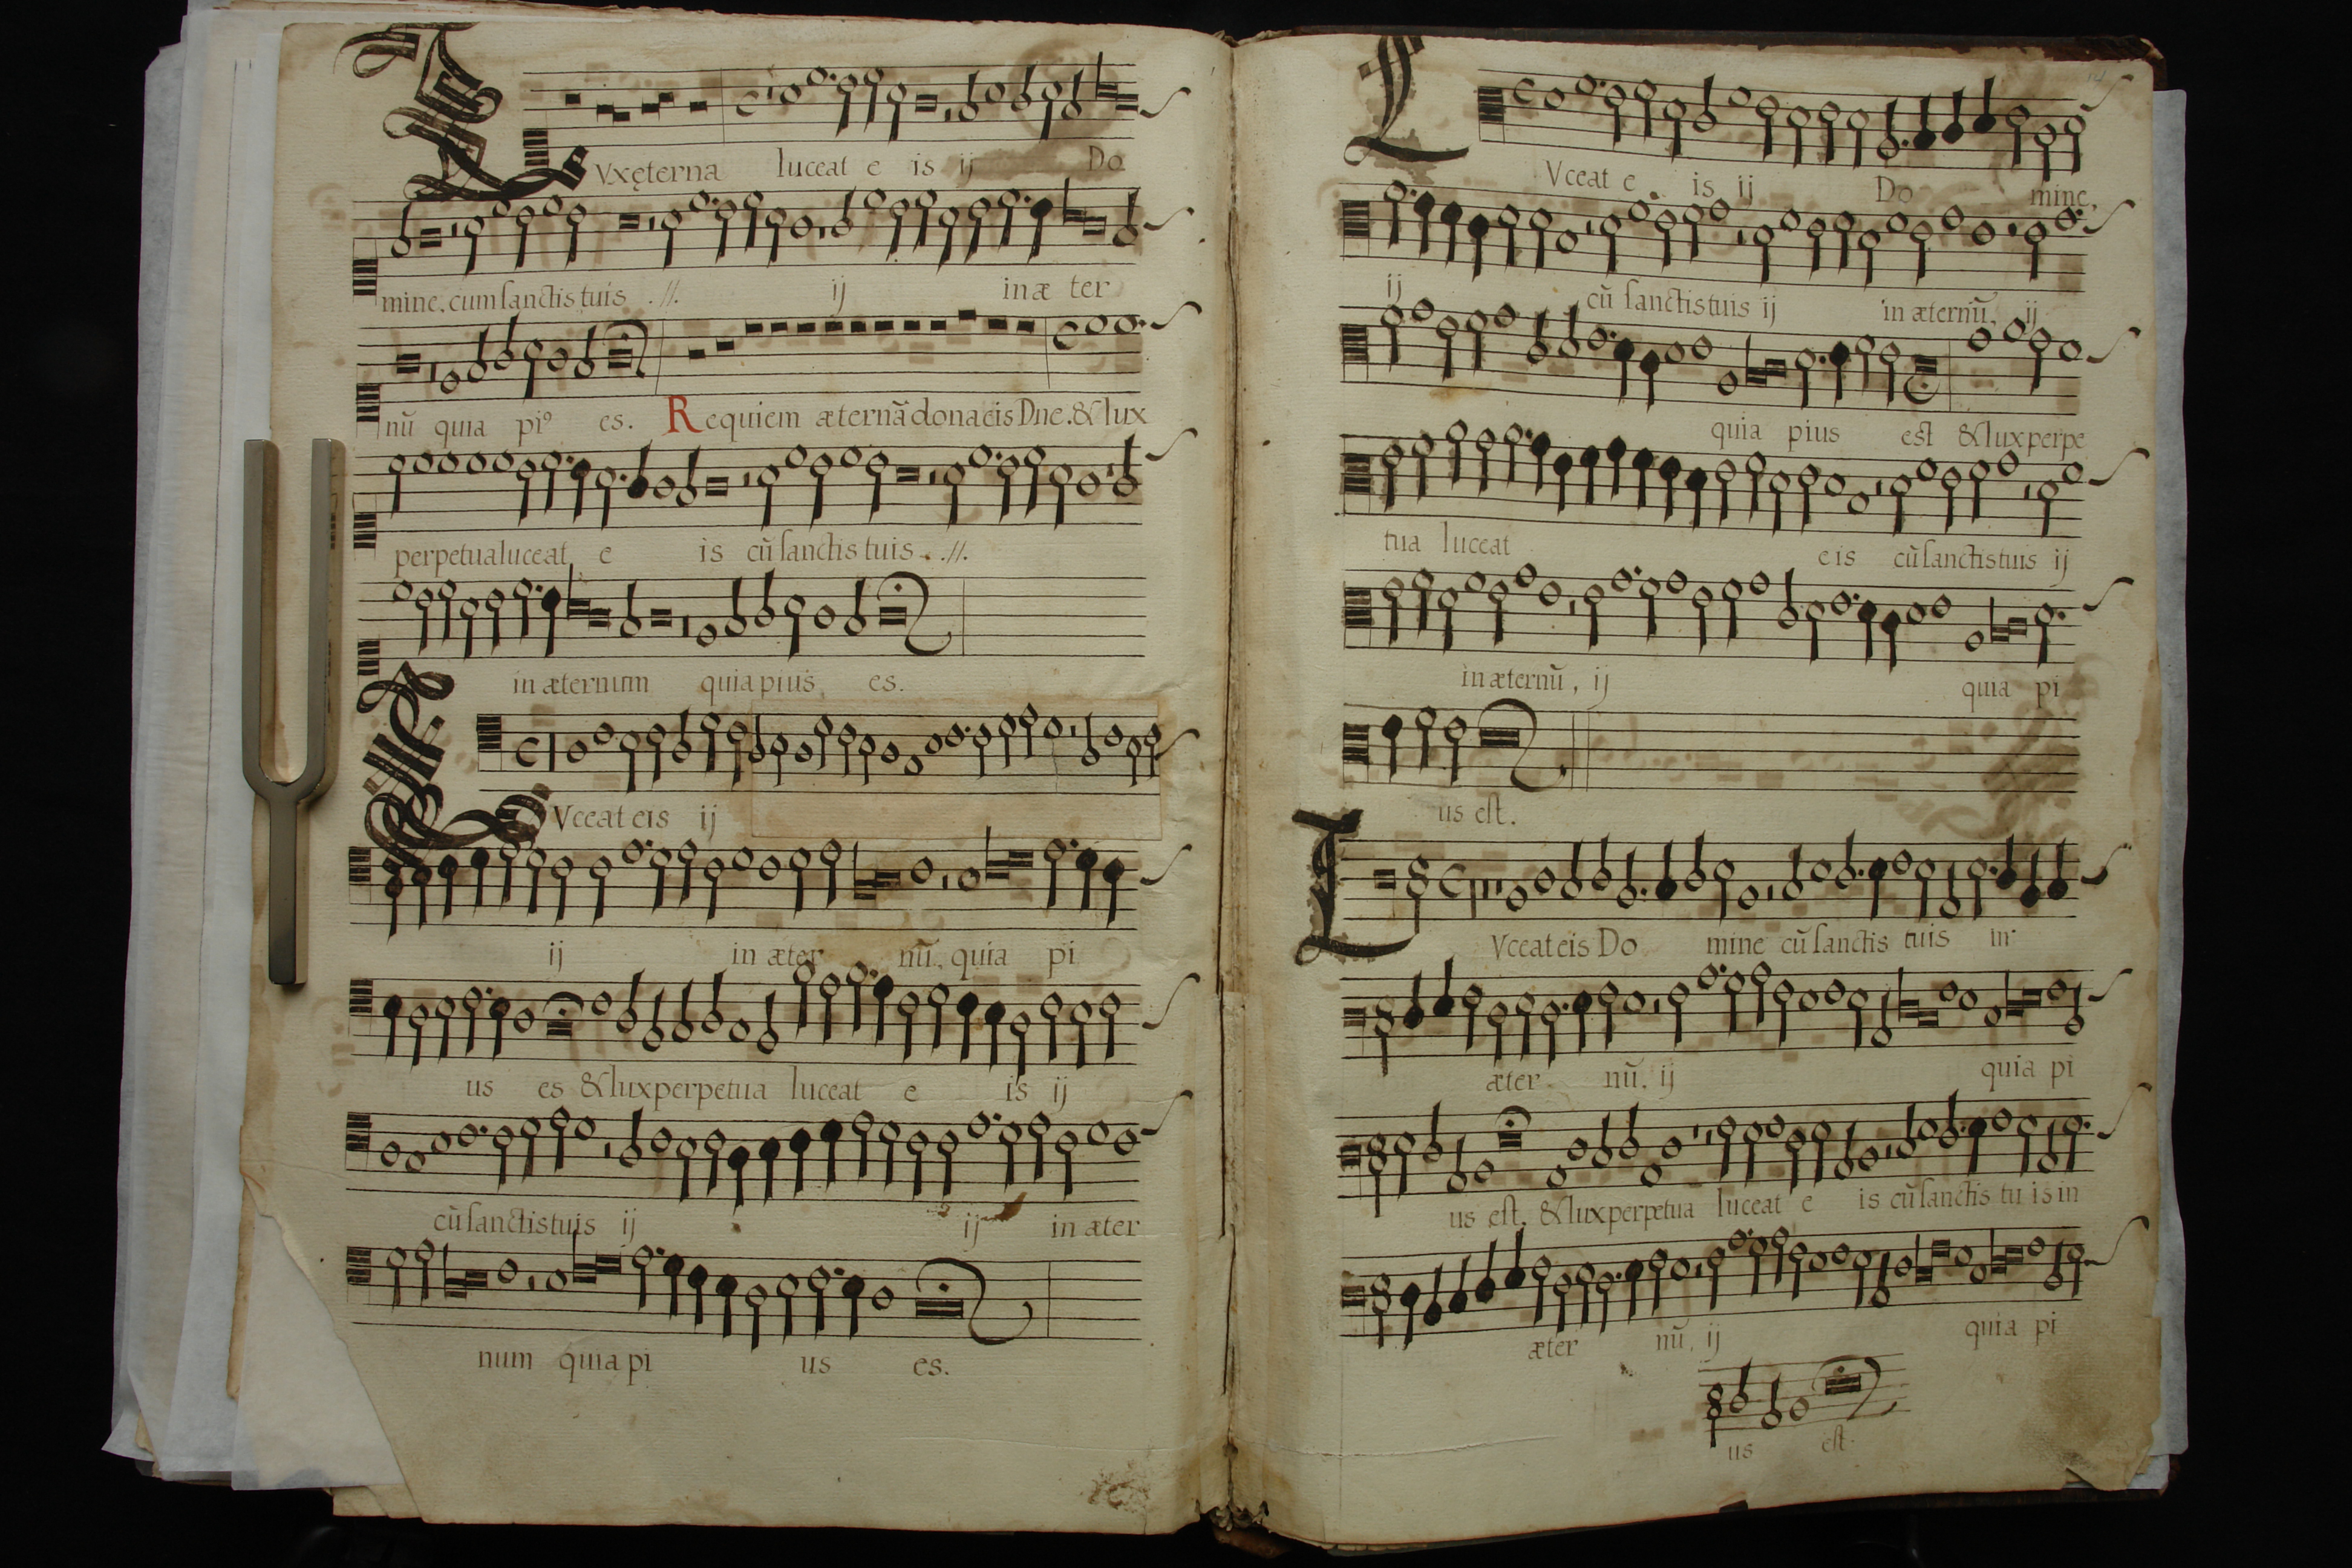 LVxęterna luceat e is ij Do
mine, cum sanctis tuis .//. ij in æ ter
nũ quia piꝰ es. Requiem æternã dona eis Dne. & lux
perpetua luceat e is cũ sanctis tuis . .//.
in æternum quia pius es.
LVceat eis ij
ij in æter nũ, quia pi
us es & lux perpetua luceat e is ij
cũ sanctis tuis ij ij in æter
num quia pi us es.
LVceat e is ij Do mine,
ij cũ sanctis tuis ij in æternũ, ij
quia pius est & lux perpe
tua luceat e is cũ sanctis tuis ij
in æternũ, ij quia pi
us est.
LVceat eis Do mine cũ sanctis tuis in
æter nũ, ij quia pi
us est. & lux perpetua luceat e is cũ sanctis tu is in
æter nũ, ij quia pi
us est.